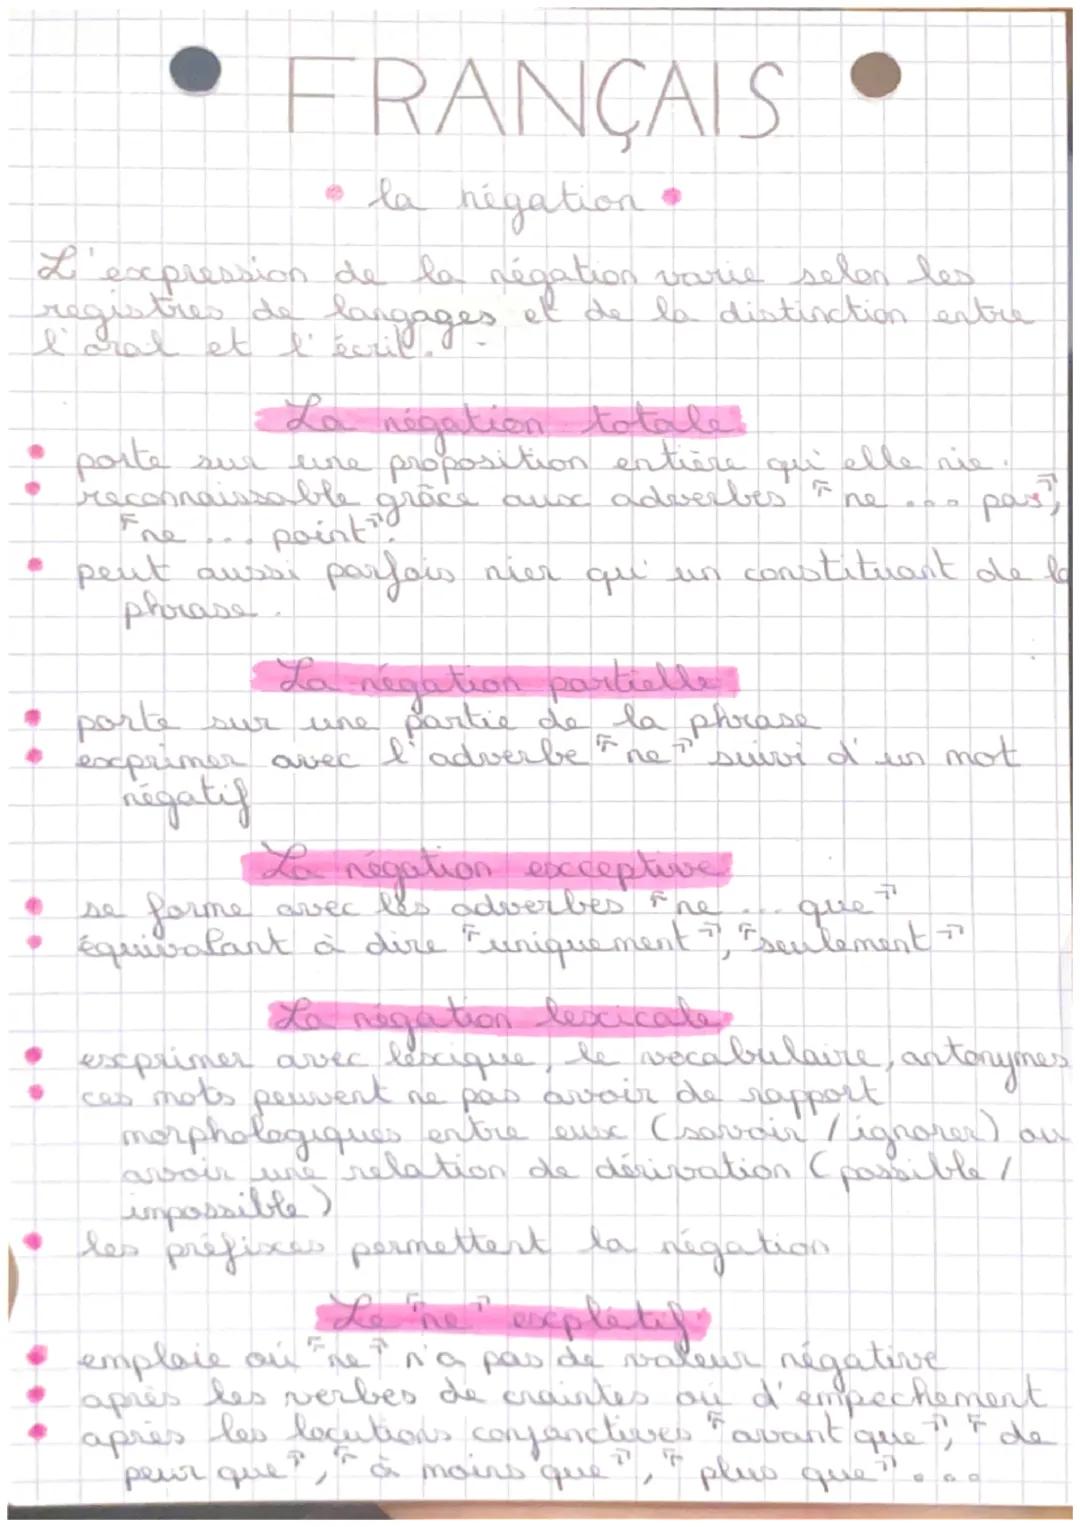 FRANÇAIS
la négation
L'expression de la négation varie selon les
registres de langages et de la distinction entre
l'oral et l'écrit.
La négation totale
porte sur une proposition entière qu'elle nie.
reconnaissable grâce aux adverbes "ne ... pas",
"ne ... point".
peut aussi parfois nier qu'un constituant de la
phrase.
La négation partielle
porte sur une partie de la phrase
exprimer avec l'adverbe "ne" suivi d'un mot
négatif
La négation exceptive
se forme avec les adverbes "ne ... que"
équivalant à dire "uniquement", "seulement"
La négation lexicale
exprimer avec lexique, le vocabulaire, antonymes
ces mots peuvent ne pas avoir de rapport
morphologiques entre eux (savoir / ignorer) ou
avoir une relation de dérivation (possible /
impossible)
les préfixes permettent la négation
Le "ne" explétif
emploie où "ne" n'a pas de valeur négative
après les verbes de craintes où d'empechement
après les locutions conjonctives "avant que", "de
peur que", "à moins que", "plus que"...